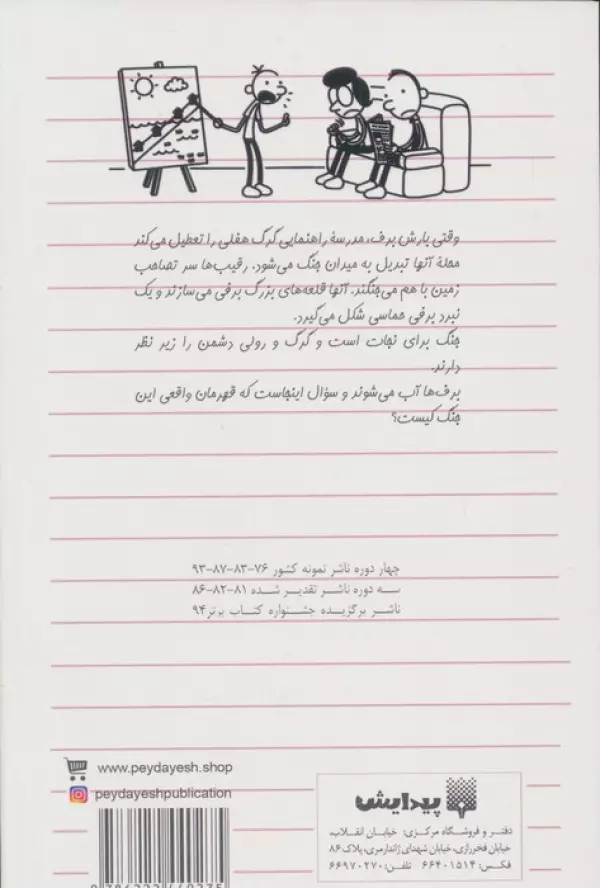 وقتی بارش برف، مدرسهٔ راهنمایی گرگ هفلی را تعطیل می‌کند
محلهٔ آنها تبدیل به میدان جنگ می‌شود. رقیب‌ها سر تصاحب
زمین با هم می‌جنگند. آنها قلعه‌های بزرگ برفی می‌سازند و یک
نبرد برفی حماسی شکل می‌گیرد.
جنگ برای نجات است و گرگ و رولی دشمن را زیر نظر
دارند.
برف‌ها آب می‌شوند و سؤال اینجاست که قهرمان واقعی این
جنگ کیست؟
چهار دوره ناشر نمونه کشور ۷۶-۸۳-۸۷-۹۳
سه دوره ناشر تقدیر شده ۸۱-۸۲-۸۶
ناشر برگزیده جشنواره کتاب برتر ۹۴
www.peydayesh.shop
peydayeshpublication
پیدایش
دفتر و فروشگاه مرکزی: خیابان انقلاب،
خیابان فخررازی، خیابان شهدای ژاندارمری، پلاک ۸۶
فکس: ۶۶۴۰۱۵۱۴ تلفن: ۶۶۹۷۰۲۷۰